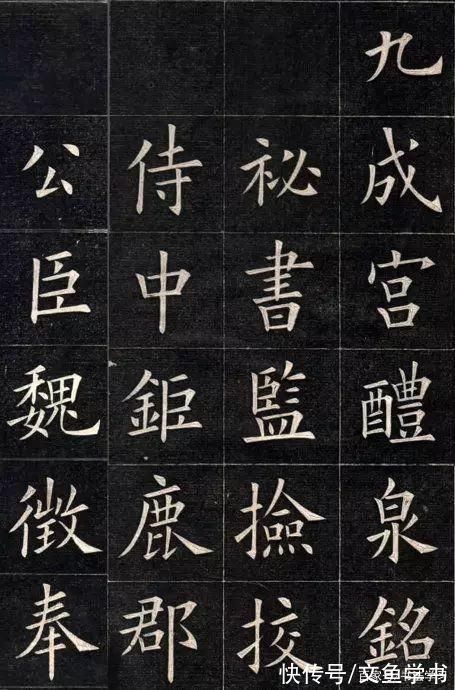 九成宫醴泉銘
祕書監撿挍
侍中鉅鹿郡
公臣魏徵奉
快传号/文鱼学书